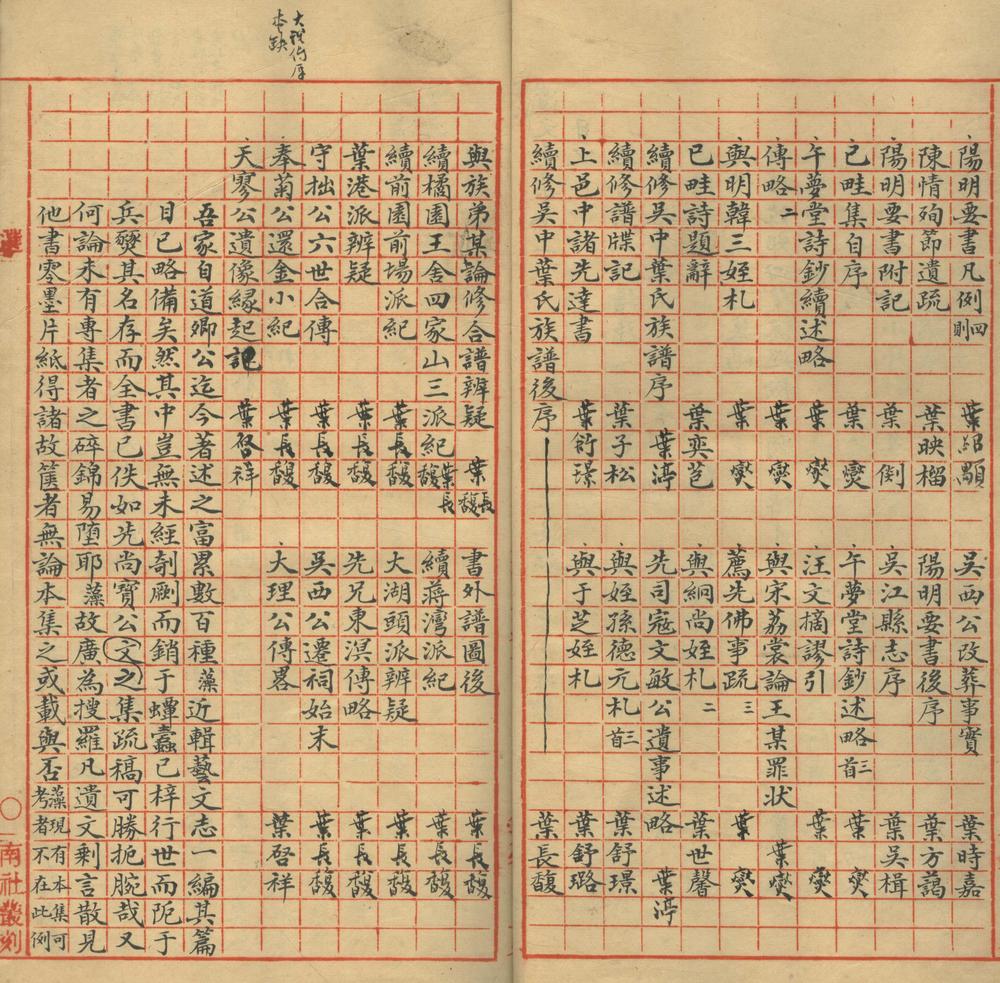 陽明要書凡例四則　葉紹顒　吳西公改葬事實　葉時嘉
陳情殉節遺疏　葉映榴　陽明要書後序　葉方藹
陽明要書附記　葉　吳江縣志序　葉吳楫
已畦集自序　葉燮　午夢堂詩鈔述略三首　葉燮
午夢堂詩鈔續述略　葉燮　汪文摘謬引　葉燮
傳略二　葉燮　與宋荔裳論王某罪状　葉燮
與明韓三姪札　葉燮　薦先佛事疏三　葉燮
已畦詩題辭　葉奕苞　與絅尚姪札二　葉世馨
續修吳中葉氏族譜序　葉渟　先司寇文敏公遺事述略　葉渟
續修譜牒記　葉子松　與姪孫德元札三首　葉舒璟
上邑中諸先達書　葉衍璟　與于芝姪札　葉舒璐
續修吳中葉氏族譜後序　葉長馥
大理傳序
本缺
與族弟某論修合譜辨疑　葉長馥　書外譜圖後　葉長馥
續橘園王舍四家山三派紀　葉長馥　續蔣灣派紀　葉長馥
續前園前場派紀　葉長馥　大湖頭派辨疑　葉長馥
葉港派辨疑　葉長馥　先兄東溟傳略　葉長馥
守拙公六世合傳　葉長馥　吳西公遷祠始末　葉長馥
奉菊公還金小紀　葉長馥　大理公傳畧　葉啓祥
天寥公遺像緣起記　葉啓祥
吾家自道卿公迄今著述之富累數百種藻近輯藝文志一編其篇
目已略備矣然其中豈無未經剞劂而銷于蟫蠹已梓行世而阨于
兵燹其名存而全書已佚如先尚寶公文之集疏稿可勝扼腕哉又
何論未有專集者之碎錦易墮耶藻故廣為搜羅凡遺文剩言散見
他書零墨片紙得諸故篋者無論本集之或載與否藻現有本集可考者不在此例
選
南社叢刻